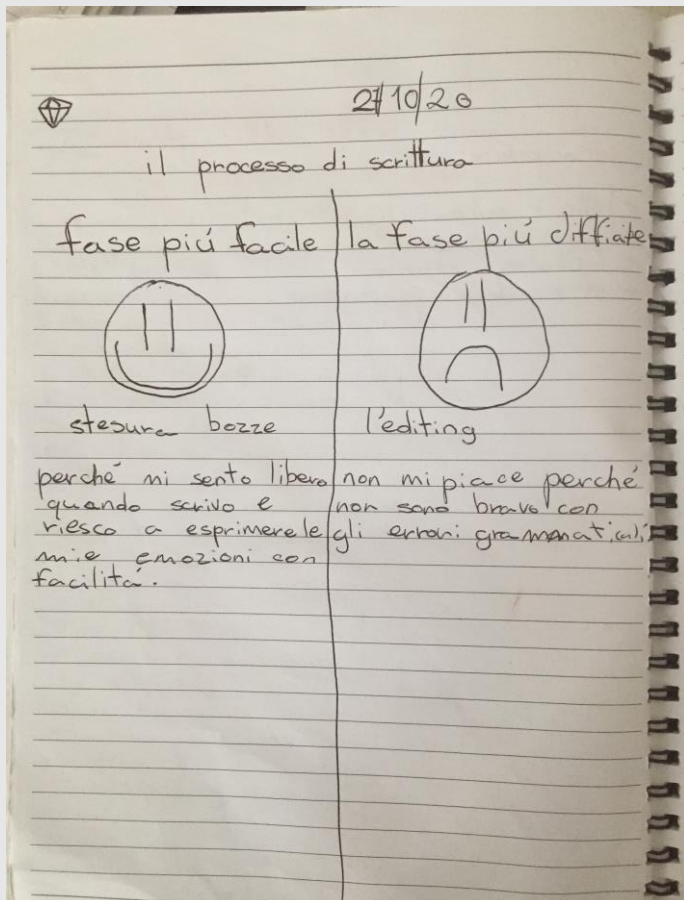 27/10/20
il processo di scrittura
fase piú facile
stesura bozze
perché mi sento libero
quando scrivo e
riesco a esprimere le
mie emozioni con
facilitá.
la fase piú difficile
l'editing
non mi piace perché
non sono bravo con
gli errori grammaticali